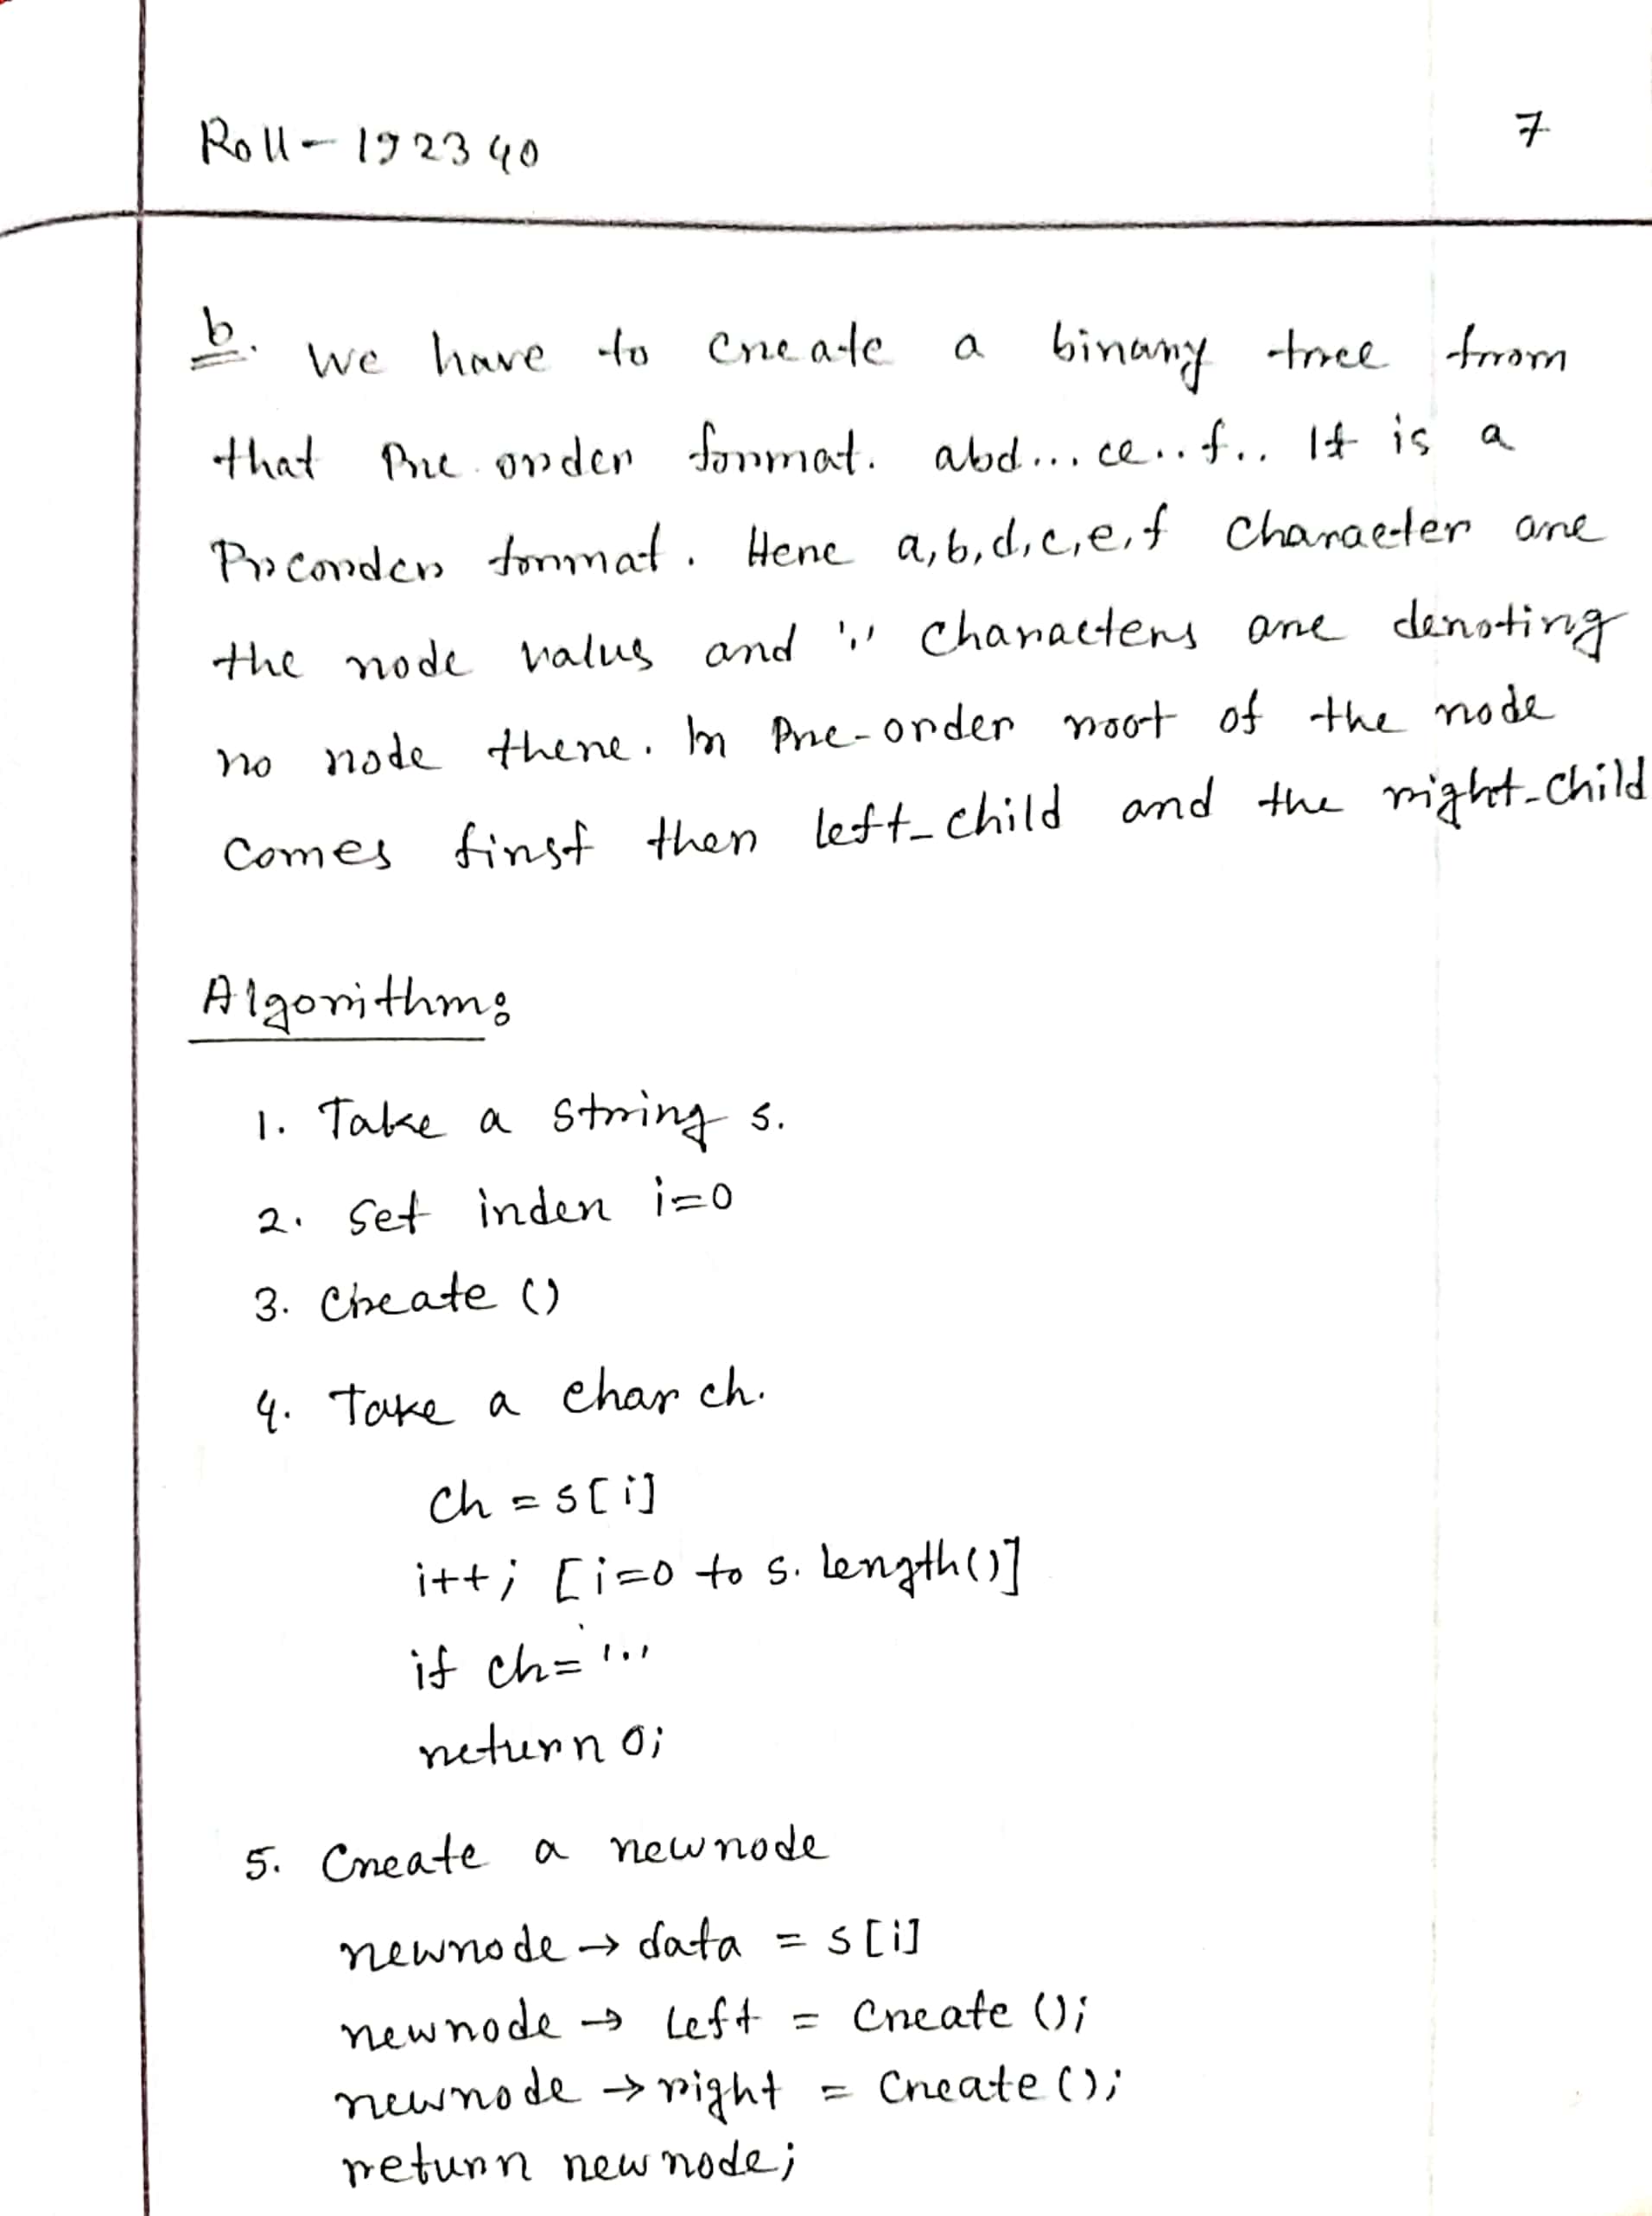 Roll - 192340
7
b. We have to create a binary tree from
that Pre order format. abd... ce.. f.. It is a
Preorder format. Here a,b,d,c,e,f Character are
the node values and '.' Characters are denoting
no node there. In Pre-order root of the node
comes first then left_child and the right_child
Algorithm:
1. Take a string s.
2. Set index i=0
3. Create ()
4. Take a char ch.
Ch = s[i]
i++; [i=0 to s. length()]
if ch= '.'
return 0;
5. Create a newnode
newnode → data = s[i]
newnode → left = Create ();
newnode → right = Create ();
return newnode;